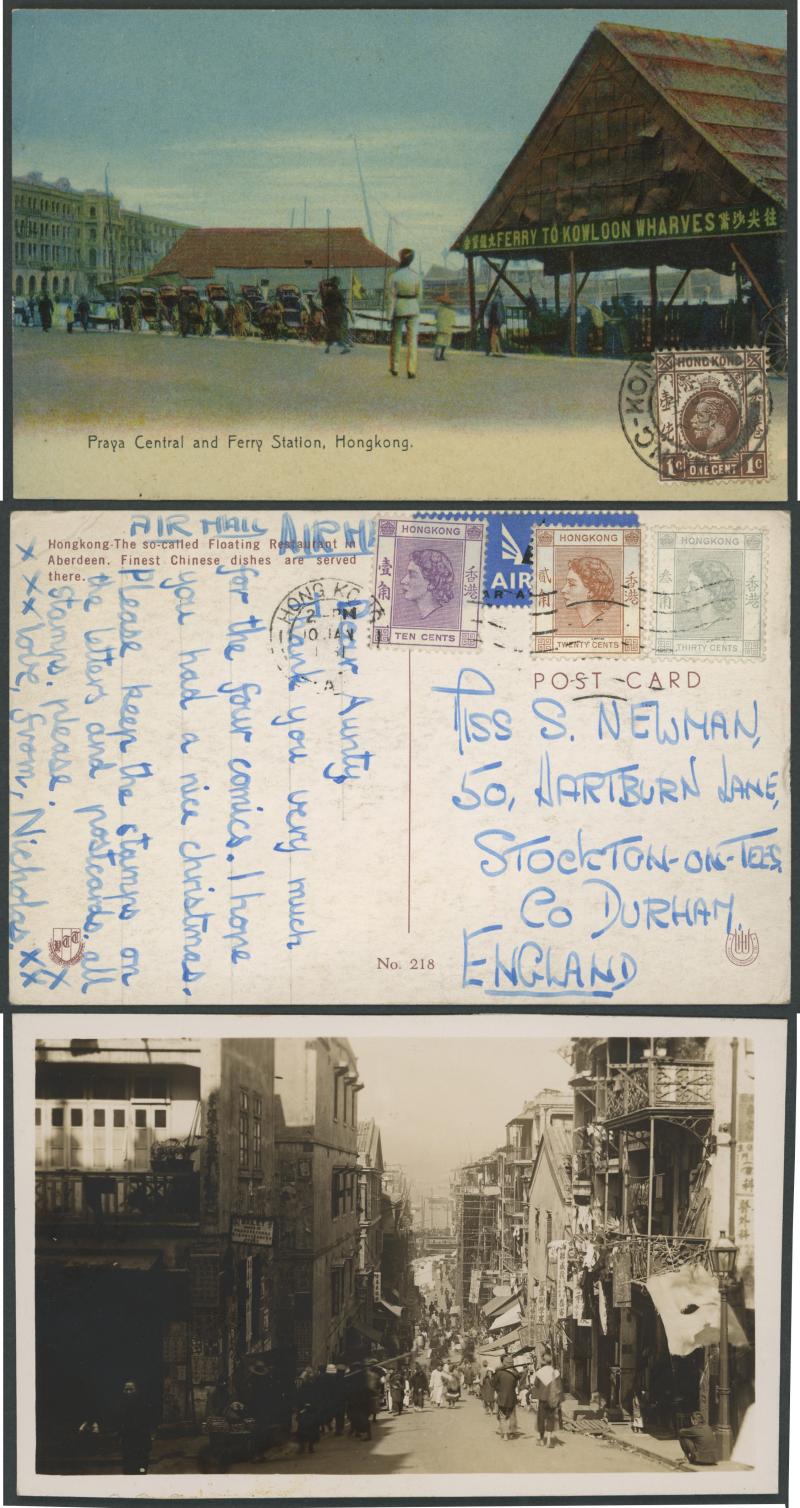 往尖沙嘴FERRY TO KOWLOON WHARVES
HONGKONG
壹
1C
ONE CENT
1C
Praya Central and Ferry Station, Hongkong.
AIR MAIL
Hongkong-The so-called Floating Restaurant in
Aberdeen. Finest Chinese dishes are served
there.
HONG KO
10 JAN
HONGKONG
壹角
香港
TEN CENTS
AIR
HONGKONG
貳角
香港
TWENTY CENTS
HONGKONG
叁角
香港
THIRTY CENTS
POST CARD
Dear Aunty,
Thank you very much
for the four comics. I hope
you had a nice christmas.
Please keep the stamps on
the letters and postcards. all
stamps. please. X
X X X love, from, Nicholas. XX
MISS S. NEWMAN,
50, HARTBURN LANE,
STOCKTON-ON-TEES,
CO DURHAM,
ENGLAND
No. 218